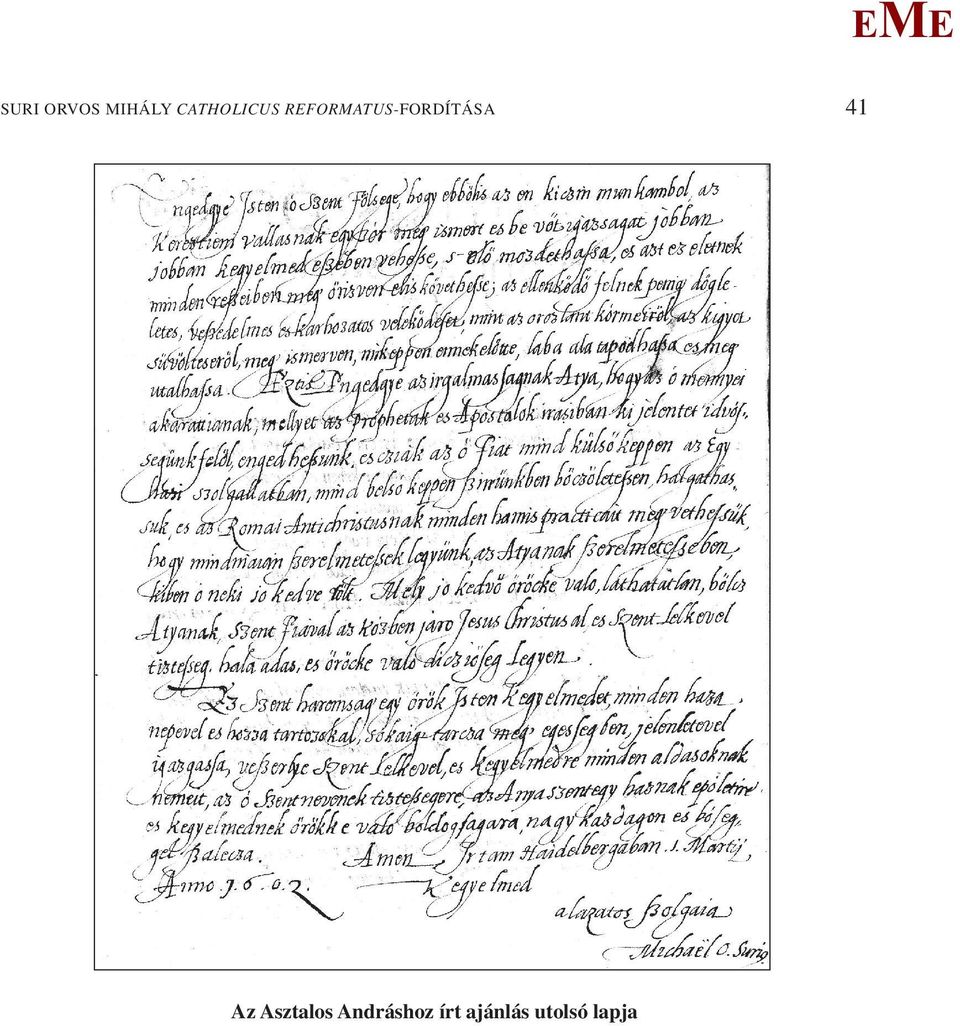 EME
SURI ORVOS MIHÁLY CATHOLICUS REFORMATUS-FORDÍTÁSA 41
Engedgye Isten ö Szent Fölsege, hogy ebbölis az en kiczin munkambol, az
Kerestieni vallasnak egyszór meg ismert es be vöt igazsagat jobban
jobban kegyelmed eszeben vehesse, s elö mozdethassa, es azt ez eletnek
minden reszeiben meg örizven el is követhesse; az ellenködö felnek penig dögle-
letes, veszedelmes es karhozatos veleködeset, mint az oroszlant körmeiröl, az kigyot
süvölteseröl, meg ismerven, mikeppen ennekelötte, laba ala tapodhassa es meg
utalhassa. Ezt is Engedgye az irgalmassagnak Atya, hogy az ö mennyei
akarattianak, mellyet az Prophetak es Apostalok irasiban ki jelentet idvös-
segünk felöl, engedhessunk, es cziak az ö Fiat mind külsö keppen az Egy
hazi szolgallatban, mind belsö keppen szivünkben böczöletessen, halgathas-
suk, es az Romai Antichristusnak minden hamis practicait meg vethessük,
hogy mindniaian szerelmetessek legyünk, az Atyanak szerelmetesseben,
kiben ö neki jo kedve tölt. Mely jo kedvö öröcke valo, lathatatlan, bölcz
Atyanak, Szent Fiával az közben jaro Jesus Christus al, es Szent Lelkevel
tisztesseg, hala adas, es öröcke valo dicziöseg legyen.
Ez Szent haromsag egy örök Isten Kegyelmedet, minden haza
nepevel es hozza tartozokal, sokaig tarcza meg egessegben, jelenletevel
igazgassa, veszerlye Szent Lelkevel, es kegyelmedre minden aldasoknak
nemeit, az ö Szent nevenek tiztessegere, az Anyaszentegy haznak epöletire
es kegyelmednek örökke valo boldogsagara, nagy kazdagon es böseg-
get szalecza. Amen. Irtam Haidelbergaban. 1. Martij,
Anno. 1.6.0.2. Kegyelmed
alazatos szolgaia
Michaël O. Surig
Az Asztalos Andráshoz írt ajánlás utolsó lapja